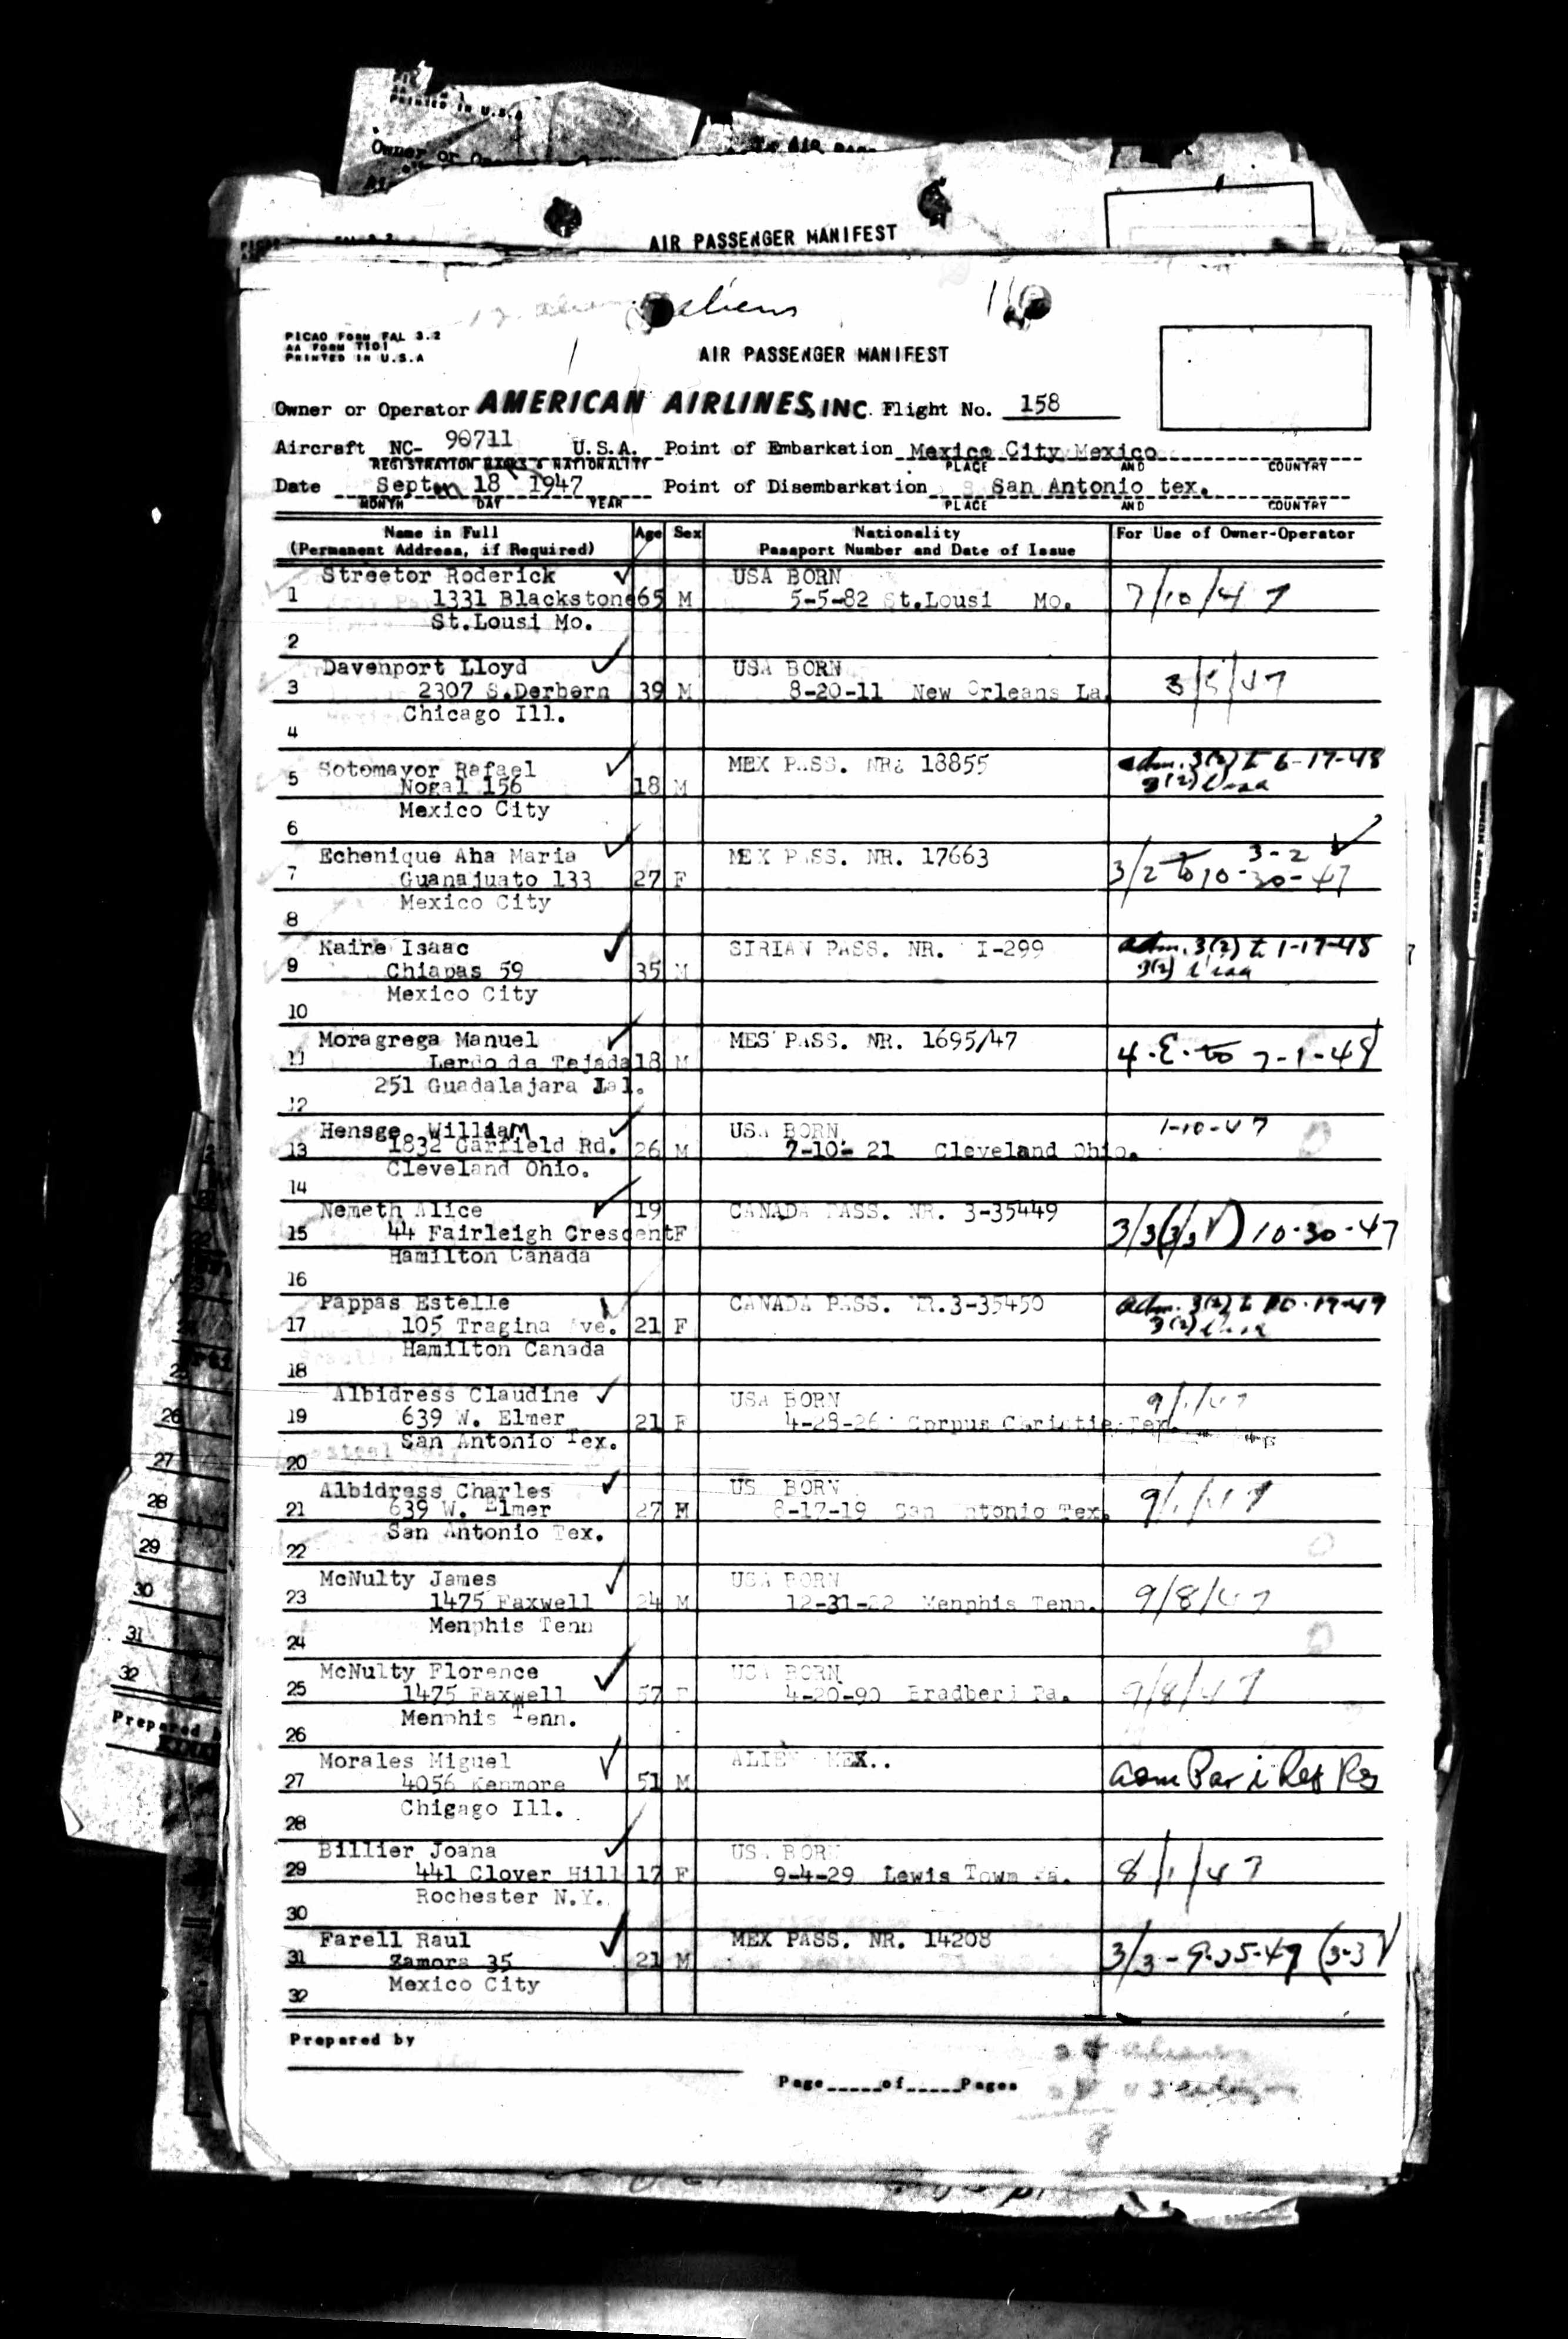 PRINTED IN U.S.A
Owner or
AIR PASSENGER MANIFEST
aliens
PICAO FORM FAL 3.2
AA FORM T101
PRINTED IN U.S.A
AIR PASSENGER MANIFEST
Owner or Operator AMERICAN AIRLINES, INC. Flight No. 158
Aircraft NC- 90711 U.S.A. Point of Embarkation Mexico City Mexico
REGISTRATION MARKS & NATIONALITY PLACE AND COUNTRY
Date Sept 18 1947 Point of Disembarkation San Antonio tex.
MONTH DAY YEAR PLACE AND COUNTRY
Name in Full Age Sex Nationality For Use of Owner-Operator
(Permanent Address, if Required) Passport Number and Date of Issue
Streetor Roderick USA BORN
1 1331 Blackstone 65 M 5-5-82 St.Lousi Mo. 7/10/47
St.Lousi Mo.
2
Davenport Lloyd USA BORN
3 2307 S.Derbern 39 M 8-20-11 New Orleans La. 3/5/47
Chicago Ill.
4
Sotomayor Rafael MEX PASS. NR. 18855 adm. 3(2) to 6-17-48
5 Nogal 156 18 M 3(2) visa
Mexico City
6
Echenique Aha Maria MEX PASS. NR. 17663 3-2
7 Guanajuato 133 27 F 3/2 to 10-30-47
Mexico City
8
Kaire Isaac SIRIAN PASS. NR. I-299 adm. 3(2) to 1-17-48
9 Chiapas 59 35 M 3(2) visa
Mexico City
10
Moragrega Manuel MES PASS. NR. 1695/47
11 Lerdo de Tejada 18 M 4-E-to 7-1-48
251 Guadalajara Jal.
12
Hensge William USA BORN 1-10-47
13 1832 Garfield Rd. 26 M 7-10- 21 Cleveland Ohio.
Cleveland Ohio.
14
Nemeth Alice 19 CANADA PASS. NR. 3-35449
15 44 Fairleigh Crescent F 3/3 (3/3 √) 10-30-47
Hamilton Canada
16
Pappas Estelle CANADA PASS. NR.3-35450 adm. 3(2) to 10-17-47
17 105 Tragina Ave. 21 F 3(2) visa
Hamilton Canada
18
Albidress Claudine USA BORN 9/1/47
19 639 W. Elmer 21 F 4-28-26 Corpus Christie Tex.
San Antonio Tex.
20
Albidress Charles US BORN
21 639 W. Elmer 27 M 8-17-19 San Antonio Tex. 9/1/47
San Antonio Tex.
22
McNulty James USA BORN
23 1475 Faxwell 24 M 12-31-22 Menphis Tenn. 9/8/47
Menphis Tenn
24
McNulty Florence USA BORN
25 1475 Faxwell 57 F 4-20-90 Bradberi Pa. 9/8/47
Menphis Tenn.
26
Morales Miguel ALIEN MEX..
27 4056 Kenmore 51 M
Chigago Ill.
28
Billier Joana USA BORN
29 441 Clover Hill 17 F 9-4-29 Lewis Town Pa. 8/1/47
Rochester N.Y.
30
Farell Raul MEX PASS. NR. 14208
31 Zamora 35 21 M 3/3-9-25-47 (3-3 √
Mexico City
32
Prepared by
Page of Pages
26
27
28
29
30
31
32
Prepared b